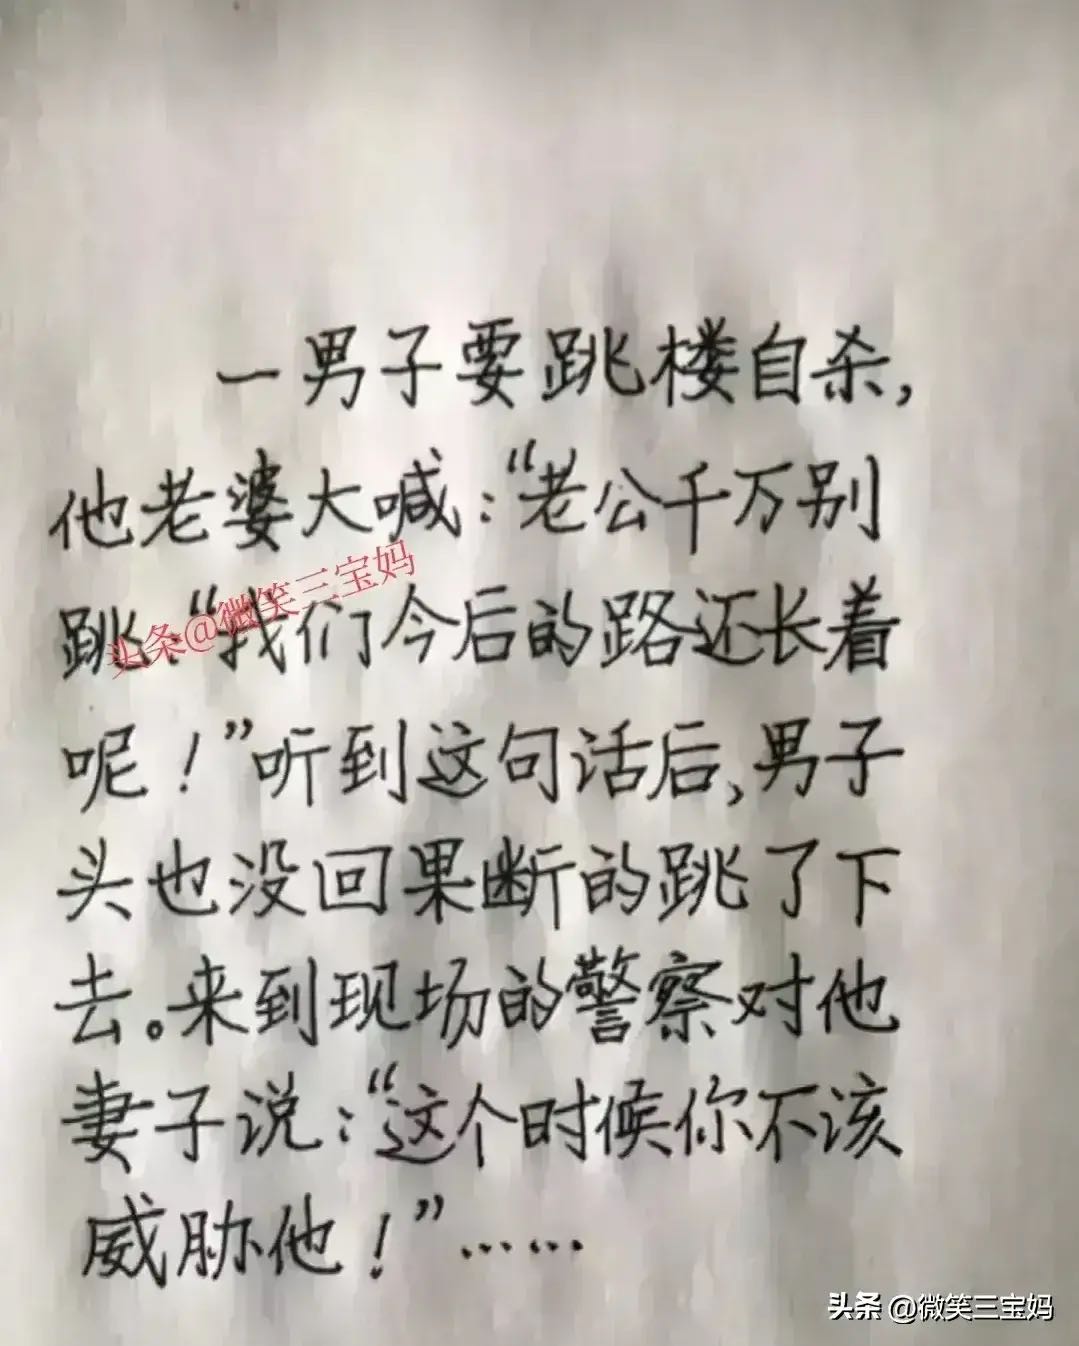 一男子要跳楼自杀，
他老婆大喊：“老公千万别
跳：“我们今后的路还长着
呢！”听到这句话后，男子
头也没回果断的跳了下
去。来到现场的警察对他
妻子说：“这个时候你不该
威胁他！”……
头条@微笑三宝妈
头条 @微笑三宝妈